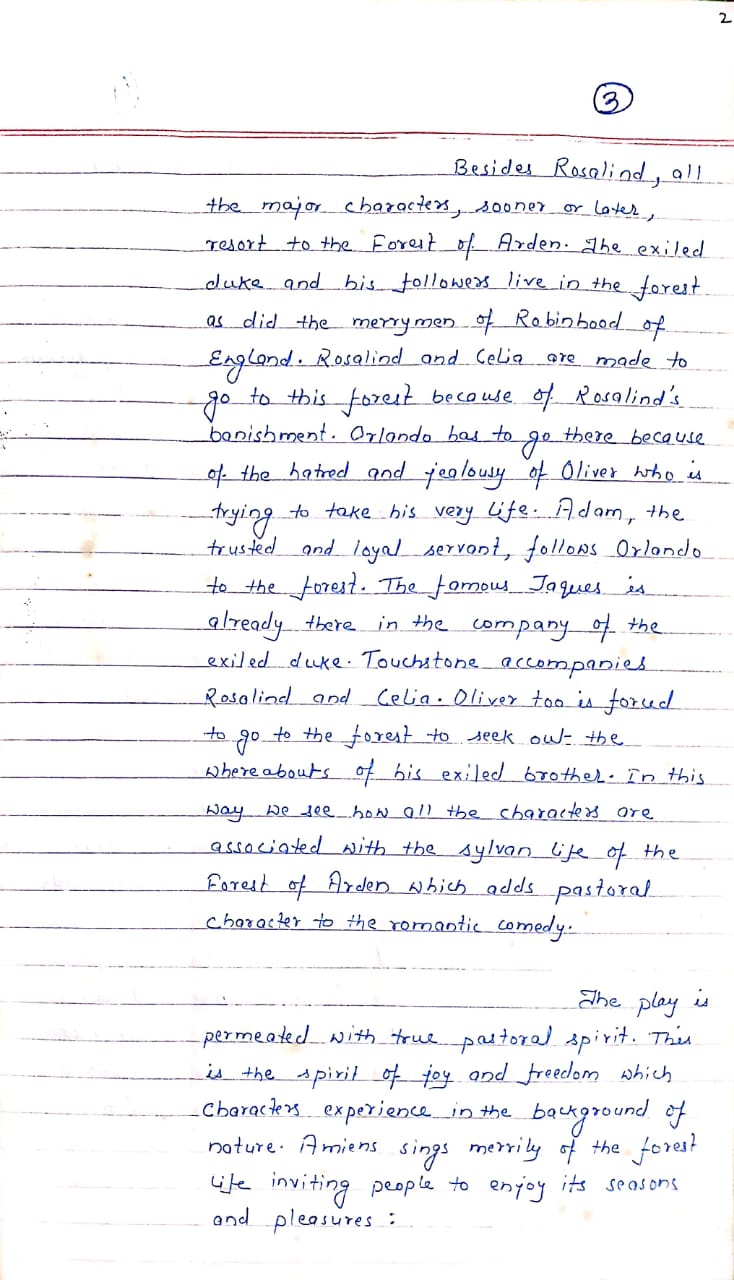 2
3
Besides Rosalind, all
the major characters, sooner or later,
resort to the Forest of Arden. The exiled
duke and his followers live in the forest
as did the merrymen of Robinhood of
England. Rosalind and Celia are made to
go to this forest because of Rosalind's
banishment. Orlando has to go there because
of the hatred and jealousy of Oliver who is
trying to take his very life. Adam, the
trusted and loyal servant, follows Orlando
to the forest. The famous Jaques is
already there in the company of the
exiled duke. Touchstone accompanies
Rosalind and Celia. Oliver too is forced
to go to the forest to seek out the
whereabouts of his exiled brother. In this
way we see how all the characters are
associated with the sylvan life of the
Forest of Arden which adds pastoral
character to the romantic comedy.
The play is
permeated with true pastoral spirit. This
is the spirit of joy and freedom which
characters experience in the background of
nature. Amiens sings merrily of the forest
life inviting people to enjoy its seasons
and pleasures :